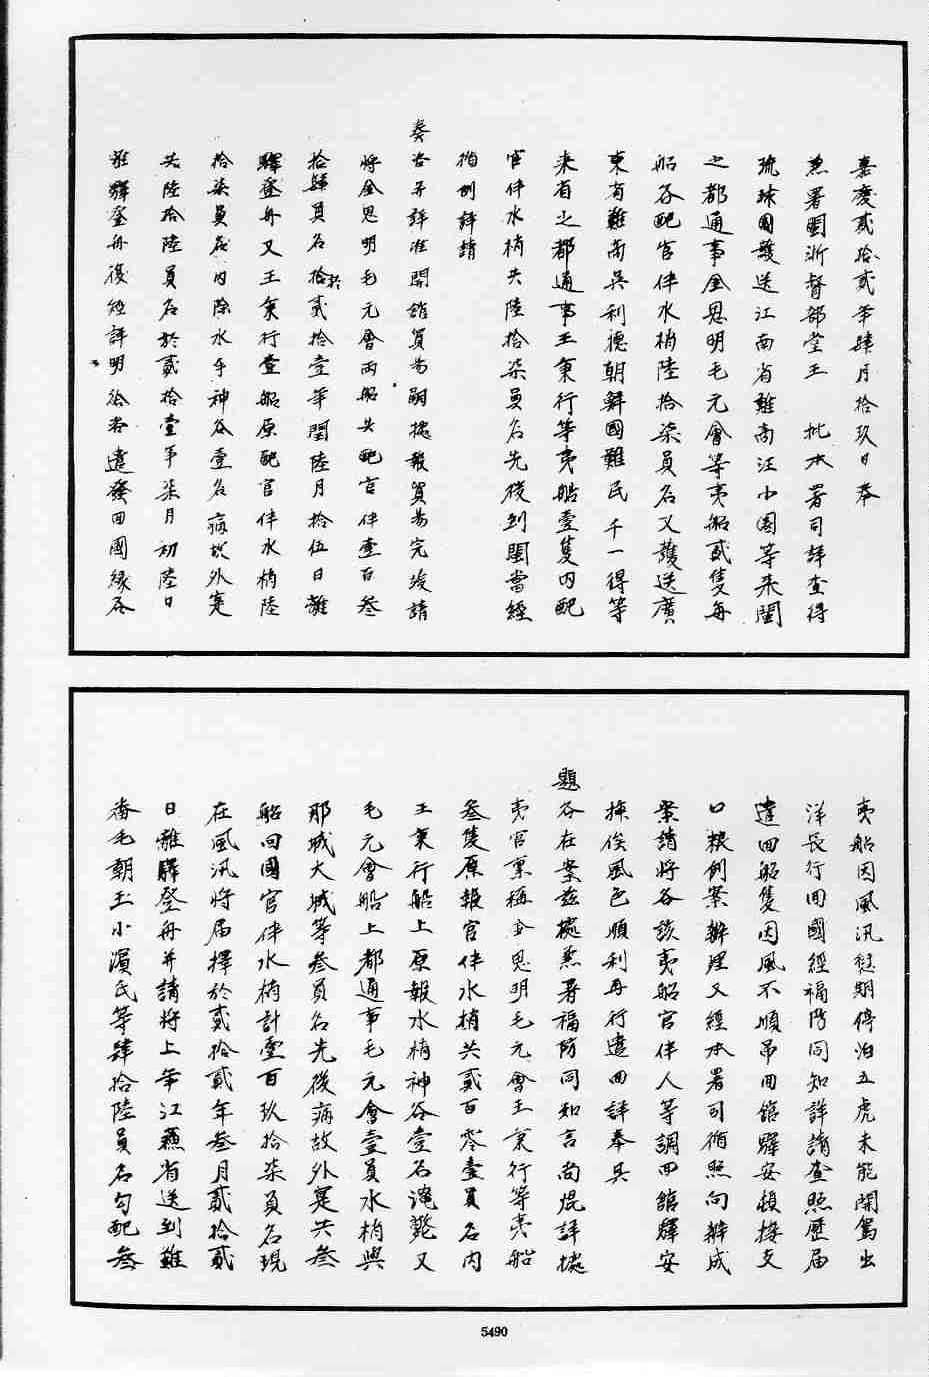 嘉慶貳拾貳年肆月拾玖日奉
兼署閩浙督部堂王 批本署司詳查得
琉球國護送江南省難商汪小園等來閩
之都通事金思明毛元會等夷船貳隻每
船各配官伴水梢陸拾柒員名又護送廣
東省難商吳利德朝鮮國難民千一得等
來省之都通事王秉行等夷船壹隻內配
官伴水梢共陸拾柒員名先後到閩當經
循例詳請
奏咨并詳准開館貿易嗣據報貿易完竣請
將金思明毛元會兩船共配官伴壹百叁
拾肆員名於拾貳拾壹年閏陸月拾伍日離
驛登舟又王秉行壹船原配官伴水梢陸
拾柒員名內除水手神谷壹名病故外寔
共陸拾陸員名於貳拾壹年柒月初陸日
離驛登舟復經詳明給咨遣發回國緣各
夷船因風汛愆期停泊五虎未能開駕出
洋長行回國經福防同知詳請查照歷届
遣回船隻因風不順吊回館驛安頓接支
口粮例案辦理又經本署司循照向辦成
案請將各該夷船官伴人等調回館驛安
揷俟風色順利再行遣回詳奉具
題咨在案茲據兼署福防同知言尚焜詳據
夷官稟稱金思明毛元會王秉行等夷船
叁隻原報官伴水梢共貳百零壹員名內
王秉行船上原報水梢神谷壹名淹斃又
毛元會船上都通事毛元會壹員水梢與
那城大城等叁員名先後病故外寔共叁
船回國官伴水梢計壹百玖拾柒員名現
在風汛將届擇於貳拾貳年叁月貳拾貳
日離驛登舟并請將上年江蘇省送到難
番毛朝玉小濵氏等肆拾陸員名勻配叁
5490